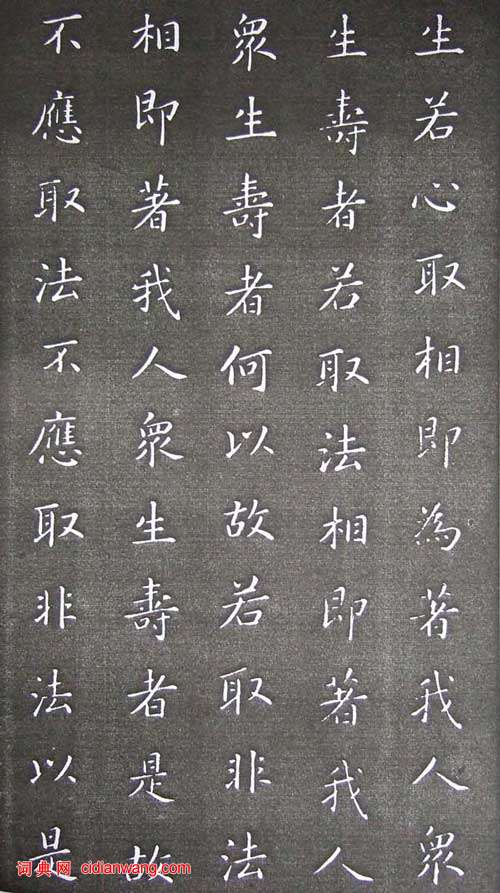 生若心取相即為著我人眾
生壽者若取法相即著我人
眾生壽者何以故若取非法
相即著我人眾生壽者是故
不應取法不應取非法以是
词典网 cidianwang.com